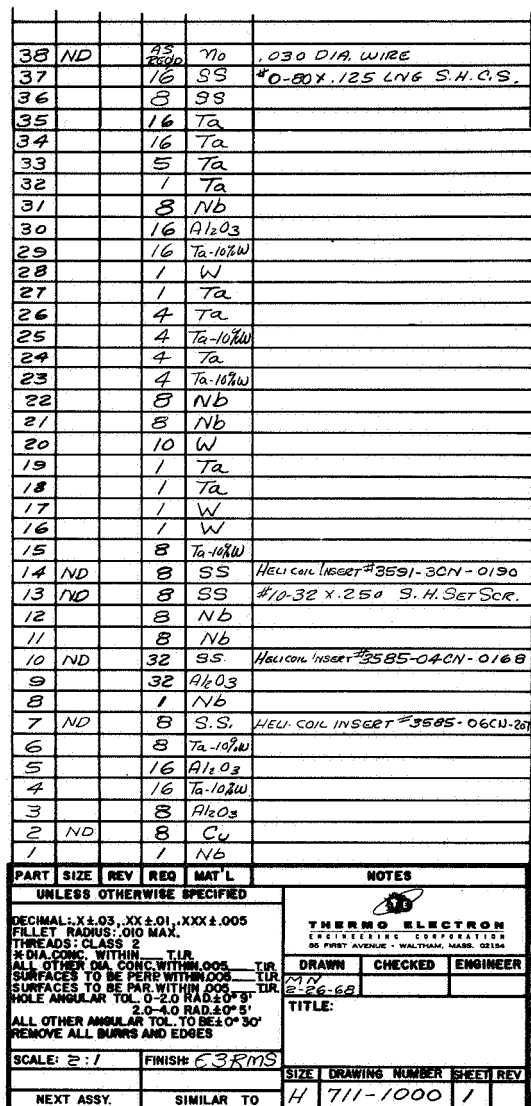 38 ND AS REQ'D Mo .030 DIA. WIRE
37 16 SS #0-80 X .125 LNG S.H.C.S.
36 8 SS
35 16 Ta
34 16 Ta
33 5 Ta
32 1 Ta
31 8 Nb
30 16 Al2O3
29 16 Ta-10%W
28 1 W
27 1 Ta
26 4 Ta
25 4 Ta-10%W
24 4 Ta
23 4 Ta-10%W
22 8 Nb
21 8 Nb
20 10 W
19 1 Ta
18 1 Ta
17 1 W
16 1 W
15 8 Ta-10%W
14 ND 8 SS HELICOIL INSERT #3591-3CN-0190
13 ND 8 SS #10-32 X .250 S.H. SET SCR.
12 8 Nb
11 8 Nb
10 ND 32 SS. HELICOIL INSERT #3585-04CN-0168
9 32 Al2O3
8 1 Nb
7 ND 8 S.S. HELI-COIL INSERT #3585-06CN-207
6 8 Ta-10%W
5 16 Al2O3
4 16 Ta-10%W
3 8 Al2O3
2 ND 8 Cu
1 1 Nb
PART SIZE REV REQ MAT'L NOTES
UNLESS OTHERWISE SPECIFIED
DECIMAL: .X±.03, .XX±.01, .XXX±.005
FILLET RADIUS: .010 MAX.
THREADS: CLASS 2
* DIA. CONC. WITHIN T.I.R.
ALL OTHER DIA. CONC. WITHIN .005 T.I.R.
SURFACES TO BE PERP. WITHIN .005 T.I.R.
SURFACES TO BE PAR. WITHIN .005 T.I.R.
HOLE ANGULAR TOL. 0-2.0 RAD.±0° 9'
2.0-4.0 RAD.±0° 5'
ALL OTHER ANGULAR TOL. TO BE±0° 30'
REMOVE ALL BURRS AND EDGES
SCALE: 2:1 FINISH: 63RMS
NEXT ASSY. SIMILAR TO
THERMO ELECTRON
ENGINEERING CORPORATION
85 FIRST AVENUE · WALTHAM, MASS. 02154
DRAWN CHECKED ENGINEER
MN
2-26-68
TITLE:
SIZE DRAWING NUMBER SHEET REV
H 711-1000 1